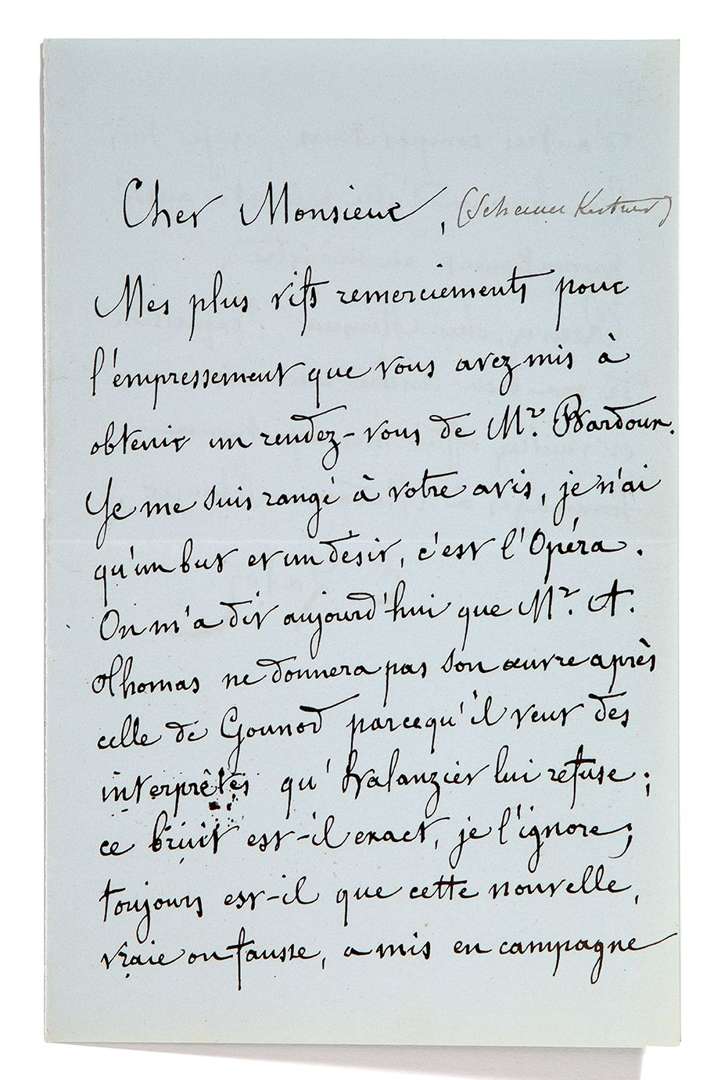 Cher Monsieur, (Scheurer Kestner)
Mes plus vifs remerciements pour
l'empressement que vous avez mis à
obtenir un rendez-vous de Mr. Bardoux.
Je me suis rangé à votre avis, je n'ai
qu'un but et un désir, c'est l'Opéra.
On m'a dit aujourd'hui que Mr. A.
Thomas ne donnera pas son œuvre après
celle de Gounod parcequ'il veut des
interprêtes qu'Halanzier lui refuse ;
ce bruit est-il exact, je l'ignore ;
toujours est-il que cette nouvelle,
vraie ou fausse, a mis en campagne